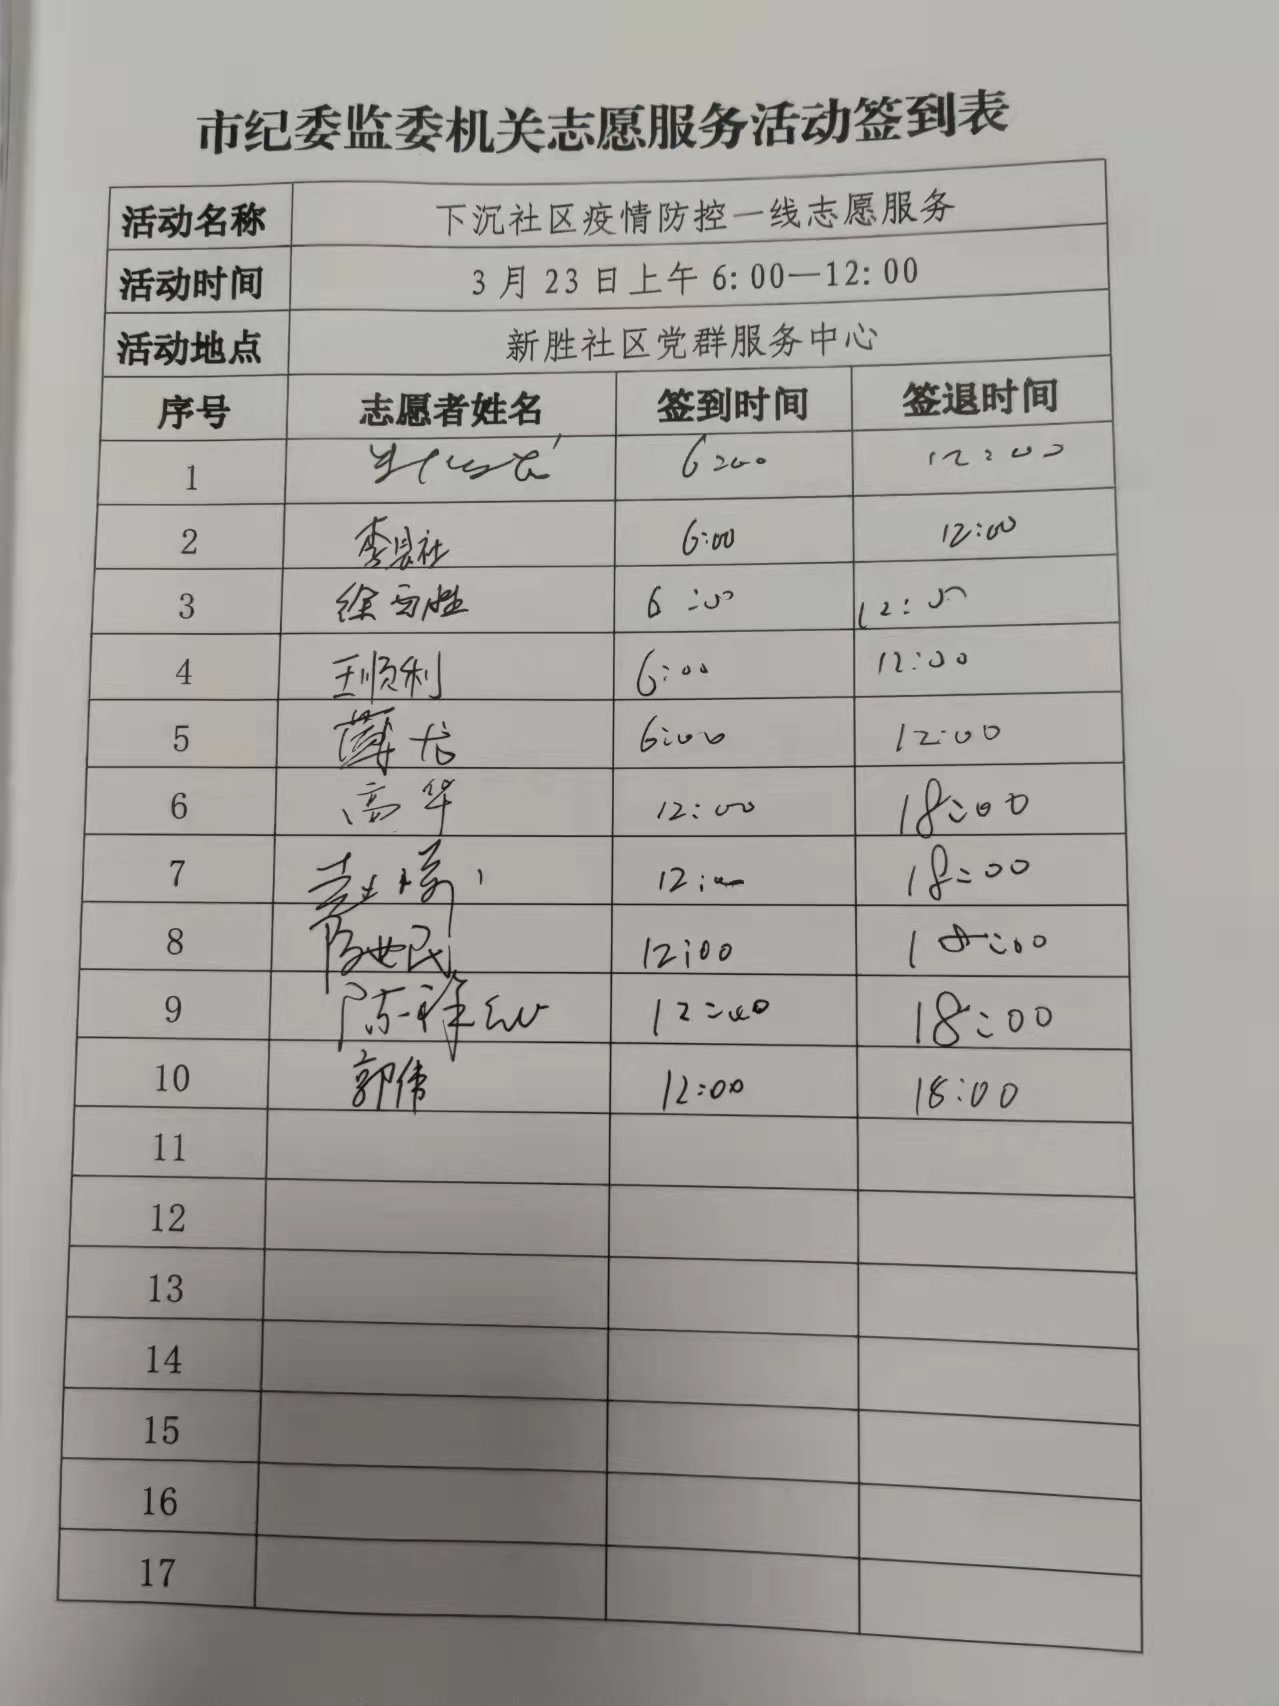 市纪委监委机关志愿服务活动签到表
活动名称 下沉社区疫情防控一线志愿服务
活动时间 3月23日上午6:00—12:00
活动地点 新胜社区党群服务中心
序号 志愿者姓名 签到时间 签退时间
1 6:00 12:00
2 6:00 12:00
3 徐 胜 6:00 12:00
4 王顺利 6:00 12:00
5 龙 6:00 12:00
6 高华 12:00 18:00
7 12:00 18:00
8 世民 12:00 18:00
9 陈 12:00 18:00
10 郭伟 12:00 18:00
11
12
13
14
15
16
17